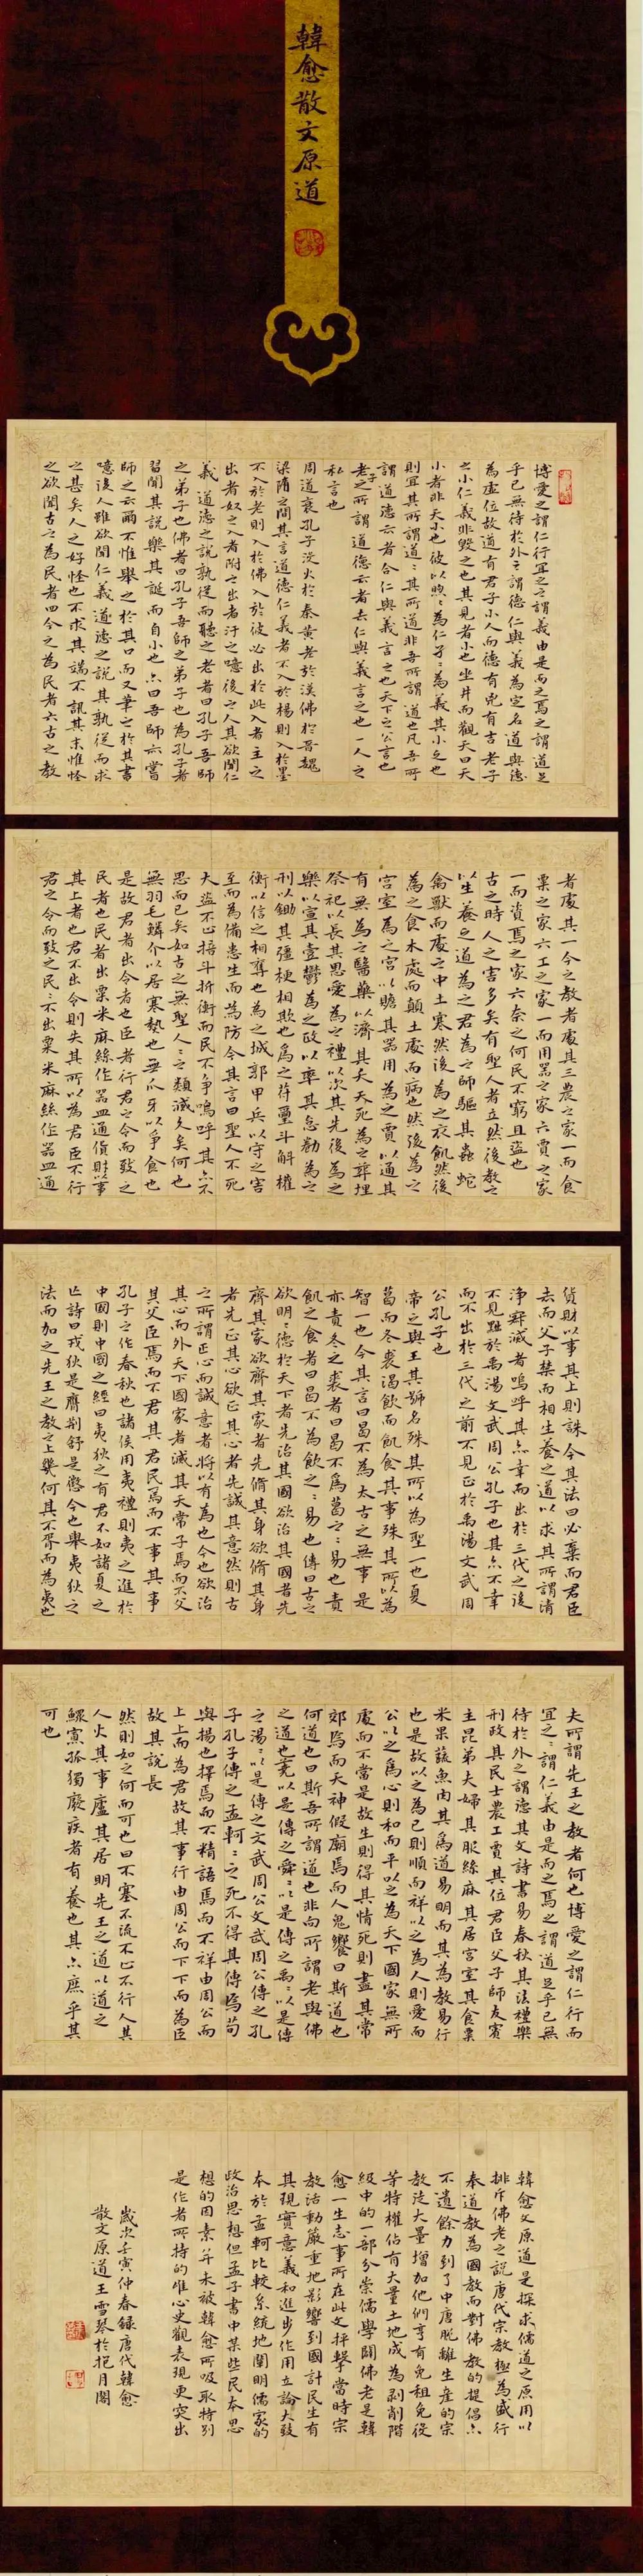 韓愈散文原道
博愛之謂仁行宜之之謂義由是而之焉之謂道足
乎己無待於外之謂德仁與義為定名道與德
為虛位故道有君子小人而德有兇有吉老子
之小仁義非毀之也其見者小也坐井而觀天曰天
小者非天小也彼以煦煦為仁孑孑為義其小之也
則宜其所謂道道其所道非吾所謂道也凡吾所
謂道德云者合仁與義言之也天下之公言也
老子之所謂道德云者去仁與義言之也一人之
私言也
周道衰孔子沒火於秦黃老於漢佛於晉魏
梁隋之間其言道德仁義者不入於楊則入於墨
不入於老則入於佛入於彼必出於此入者主之
出者奴之入者附之出者汙之噫後之人其欲聞仁
義道德之說孰從而聽之老者曰孔子吾師
之弟子也佛者曰孔子吾師之弟子也為孔子者
習聞其說樂其誕而自小也亦曰吾師亦嘗
師之云爾不惟舉之於其口而又筆之於其書
噫後人雖欲聞仁義道德之說其孰從而求
之甚矣人之好怪也不求其端不訊其末惟怪
之欲聞古之為民者四今之為民者六古之教
者處其一今之教者處其三農之家一而食
粟之家六工之家一而用器之家六賈之家
一而資焉之家六奈之何民不窮且盜也
古之時人之害多矣有聖人者立然後教之
以生養之道為之君為之師驅其蟲蛇
禽獸而處之中土寒然後為之衣飢然後
為之食木處而顛土處而病也然後為之
宮室為之宮以贍其器用為之賈以通其
有無為之醫藥以濟其夭夭死為之葬埋
祭祀以長其恩愛為之禮以次其先後為之
樂以宣其壹鬱為之政以率其怠勌為之
刑以鋤其彊梗相欺也為之符璽斗斛權
衡以信之相奪也為之城郭甲兵以守之害
至而為備患生而為防今其言曰聖人不死
大盜不止掊斗折衡而民不爭嗚呼其亦不
思而已矣如古之無聖人人之類滅久矣何也
無羽毛鱗介以居寒熱也無爪牙以爭食也
是故君者出令者也臣者行君之令而致之
民者也民者出粟米麻絲作器皿通貨財以事
其上者也君不出令則失其所以為君臣不行
君之令而致之民民不出粟米麻絲作器皿通
貨財以事其上則誅今其法曰必棄而君臣
去而父子禁而相生養之道以求其所謂清
淨寂滅者嗚呼其亦幸而出於三代之後
不見黜於禹湯文武周公孔子也其亦不幸
而不出於三代之前不見正於禹湯文武周
公孔子也
帝之與王其號名殊其所以為聖一也夏
葛而冬裘渴飲而飢食其事殊其所以為
智一也今其言曰曷不為太古之無事是
亦責冬之裘者曰曷不為葛之之易也責
飢之食者曰曷不為飲之之易也傳曰古之
欲明明德於天下者先治其國欲治其國者先
齊其家欲齊其家者先脩其身欲脩其身
者先正其心欲正其心者先誠其意然則古
之所謂正心而誠意者將以有為也今也欲治
其心而外天下國家者滅其天常子焉而不父
其父臣焉而不君其君民焉而不事其事
孔子之作春秋也諸侯用夷禮則夷之進於
中國則中國之經曰夷狄之有君不如諸夏之
亡詩曰戎狄是膺荊舒是懲今也舉夷狄之
法而加之先王之教之上幾何其不胥而為夷也
夫所謂先王之教者何也博愛之謂仁行而
宜之之謂仁義由是而之焉之謂道足乎己無
待於外之謂德其文詩書易春秋其法禮樂
刑政其民士農工賈其位君臣父子師友賓
主昆弟夫婦其服絲麻其居宮室其食粟
米果蔬魚肉其為道易明而其為教易行
也是故以之為己則順而祥以之為人則愛而
公以之為心則和而平以之為天下國家無所
處而不當是故生則得其情死則盡其常
郊焉而天神假廟焉而人鬼饗曰斯道也
何道也曰斯吾所謂道也非向所謂老與佛
之道也堯以是傳之舜舜以是傳之禹禹以是傳
之湯湯以是傳之文武周公文武周公傳之孔
子孔子傳之孟軻軻之死不得其傳焉荀
與揚也擇焉而不精語焉而不祥由周公而
上上而為君故其事行由周公而下下而為臣
故其說長
然則如之何而可也曰不塞不流不止不行人其
人火其事廬其居明先王之道以道之
鰥寡孤獨廢疾者有養也其亦庶乎其
可也
韓愈文原道是探求儒道之原用以
排斥佛老之說唐代宗教極為盛行
奉道教為國教而對佛教的提倡亦
不遺餘力到了中唐脫離生產的宗
教徒大量增加他們享有免租免役
等特權佔有大量土地成為剝削階
級中的一部分崇儒學闢佛老是韓
愈一生志事所在此文抨擊當時宗
教活動嚴重地影響到國計民生有
其現實意義和進步作用立論大致
本於孟軻比較系統地闡明儒家的
政治思想但孟子書中某些民本思
想的因素并未被韓愈所吸取特別
是作者所持的唯心史觀表現更突出
歲次壬寅仲春錄唐代韓愈
散文原道王雪琴於抱月閣